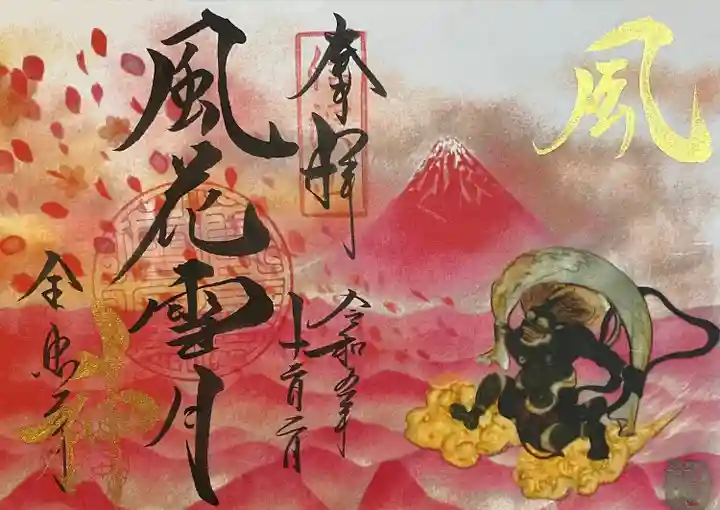 風
奉拝
令和五年
風花雪月
全忠寺